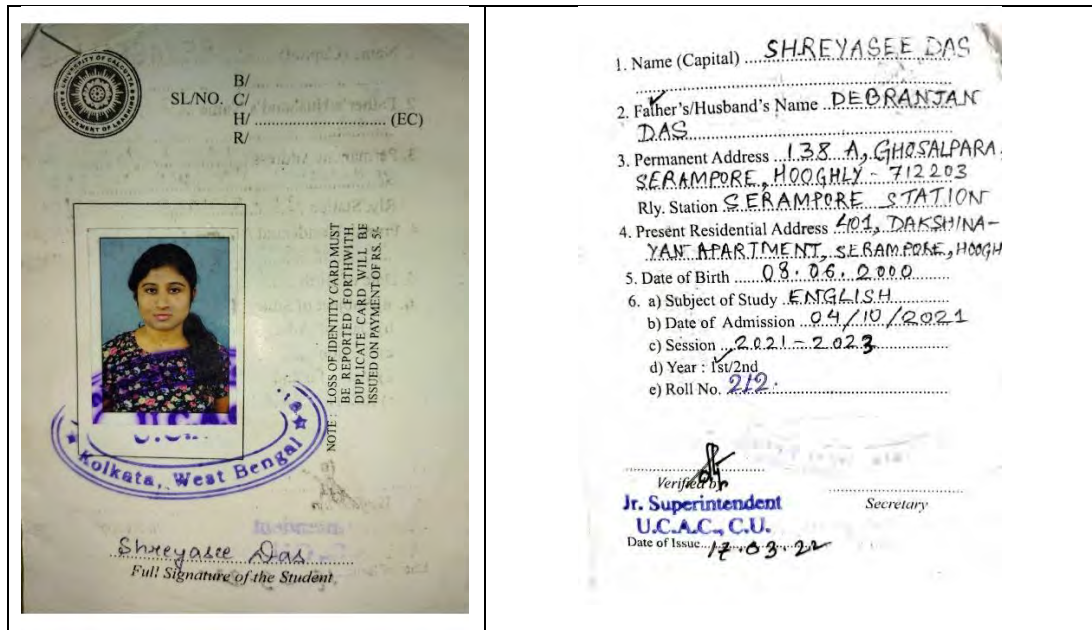 UNIVERSITY OF CALCUTTA
ADVANCEMENT OF LEARNING
B/
SL/NO. C/
H/ .............................. (EC)
R/
NOTE : LOSS OF IDENTITY CARD MUST
BE REPORTED FORTHWITH.
DUPLICATE CARD WILL BE
ISSUED ON PAYMENT OF RS. 5/-
Kolkata, West Bengal
Shreyasee Das
Full Signature of the Student
1. Name (Capital) SHREYASEE DAS
2. Father's/Husband's Name DEBRANJAN
DAS
3. Permanent Address 138 A, GHOSALPARA
SERAMPORE, HOOGHLY - 712203
Rly. Station SERAMPORE STATION
4. Present Residential Address 401, DAKSHINA-
YAN APARTMENT, SERAMPORE, HOOGH
5. Date of Birth 08.06.2000
6. a) Subject of Study ENGLISH
b) Date of Admission 04/10/2021
c) Session 2021-2023
d) Year : 1st/2nd
e) Roll No. 212.
Verified by
Secretary
Jr. Superintendent
U.C.A.C., C.U.
Date of Issue 17.03.22